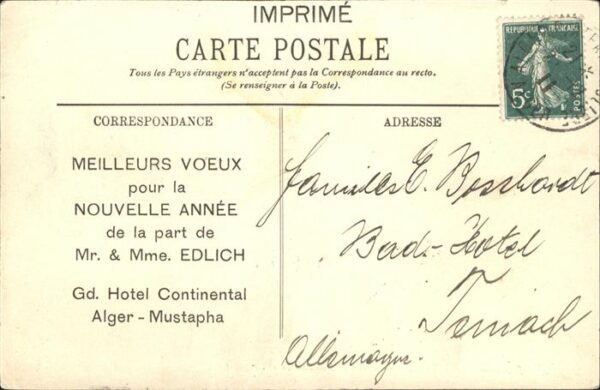 IMPRIMÉ
CARTE POSTALE
Tous les Pays étrangers n'acceptent pas la Correspondance au recto.
(Se renseigner à la Poste).
REPUBLIQUE FRANÇAISE
5c
POSTES
CORRESPONDANCE
ADRESSE
MEILLEURS VŒUX
pour la
NOUVELLE ANNÉE
de la part de
Mr. & Mme. EDLICH
Gd. Hotel Continental
Alger - Mustapha
Familes E. Bosshardt
Bad-Hotel
Teinach
Allemagne.